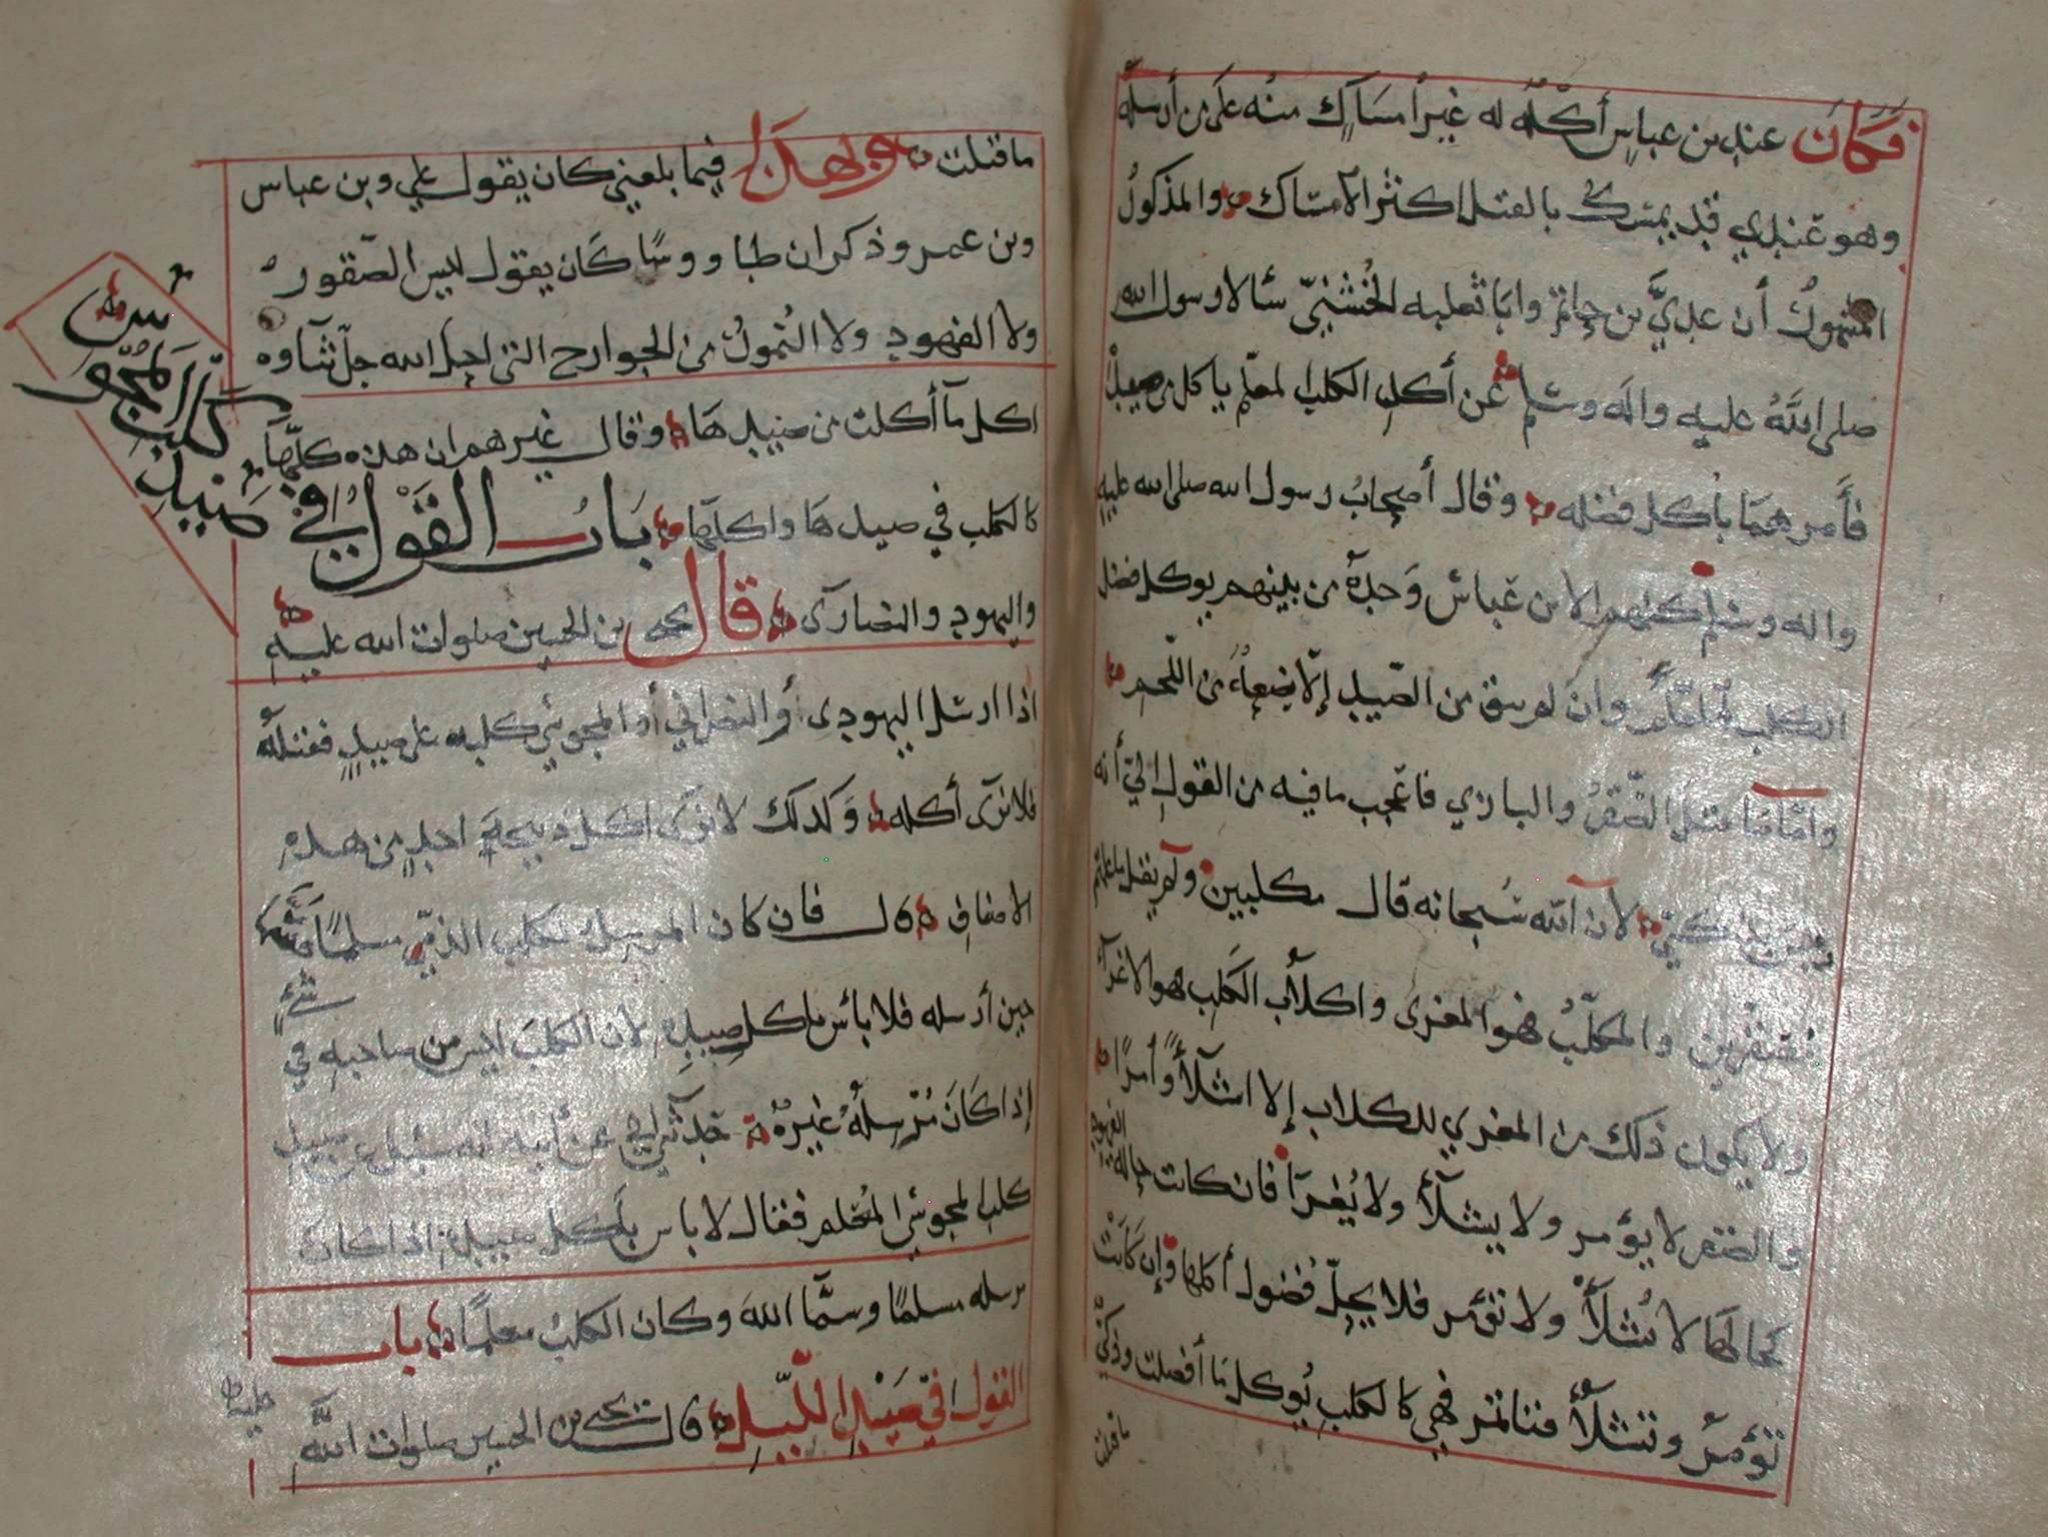 فكان عند بن عباس أكله له غير امساك منه على من أرسله
وهو عندي قد يمسك بالقتل اكثر الامساك والمذكور
المشهور أن عدي بن حاتم وابا ثعلبه الخشني سألا رسول الله
صلى الله عليه واله وسلم عن أكل الكلب المعلم يأكل من صيده
فأمرهما بأكل فضله وقال أصحاب رسول الله صلى الله عليه
واله وسلم كلهم الا بن عباس وحده من بينهم يوكل فضل
الكلب المعلم وان لم يبق من الصيد إلا بضعة من اللحم
واما ما قتل الصقر والبازي فاعجب ما فيه من القول إلي أنه
ذكي لأن الله سبحانه قال مكلبين ولم يقل ما علمتم
مصقرين والمكلب فهو المغرى واكلاب الكلب هو الاغراء
ولا يكون ذلك من المغري للكلاب إلا اشلاءً وأمرًا
والصقر لا يؤمر ولا يشلأ ولا يغرا فان كانت حاله الفهود
كحالها لا تشلأ ولا تؤمر فلا يحل فضول أكلها وإن كانت
تؤمر وتشلأ فتأتمر فهي كالكلب يوكل ما أفضلت وذكي
ما قتلت
ما قتلت وبهذا فيما بلغني كان يقول علي وبن عباس
وبن عمر وذكر ان طاووسًا كان يقول ليس الصقور
ولا الفهود ولا النمور من الجوارح التي احل الله جل ثناؤه
اكل ما أكلت من صيدها وقال غيرهم ان هذه كلها
كالكلب في صيدها واكلها باب القول في
صيد كلب المجوس
واليهود والنصارى قال يحيى بن الحسين صلوات الله عليه
اذا ارسل اليهودي أو النصراني أو المجوسي كلبه على صيدٍ فقتله
فلا نرى أكله وكذلك لا نرى اكل ذبيحة احدٍ من هذه
الاصناف قال فان كان المرسل لكلب الذمي مسلمًا وسمى
حين أرسله فلا بأس بأكل صيده لان الكلب ليس من صاحبه في شيءٍ
إذا كان مرسله غيره حدثني أبي عن أبيه انه سئل عن صيد
كلب المجوسي المعلم فقال لا باس بأكل صيده اذا كان
مرسله مسلمًا وسما الله وكان الكلب معلمًا باب
القول في صيد الليل قال يحيى بن الحسين صلوات الله
عليه